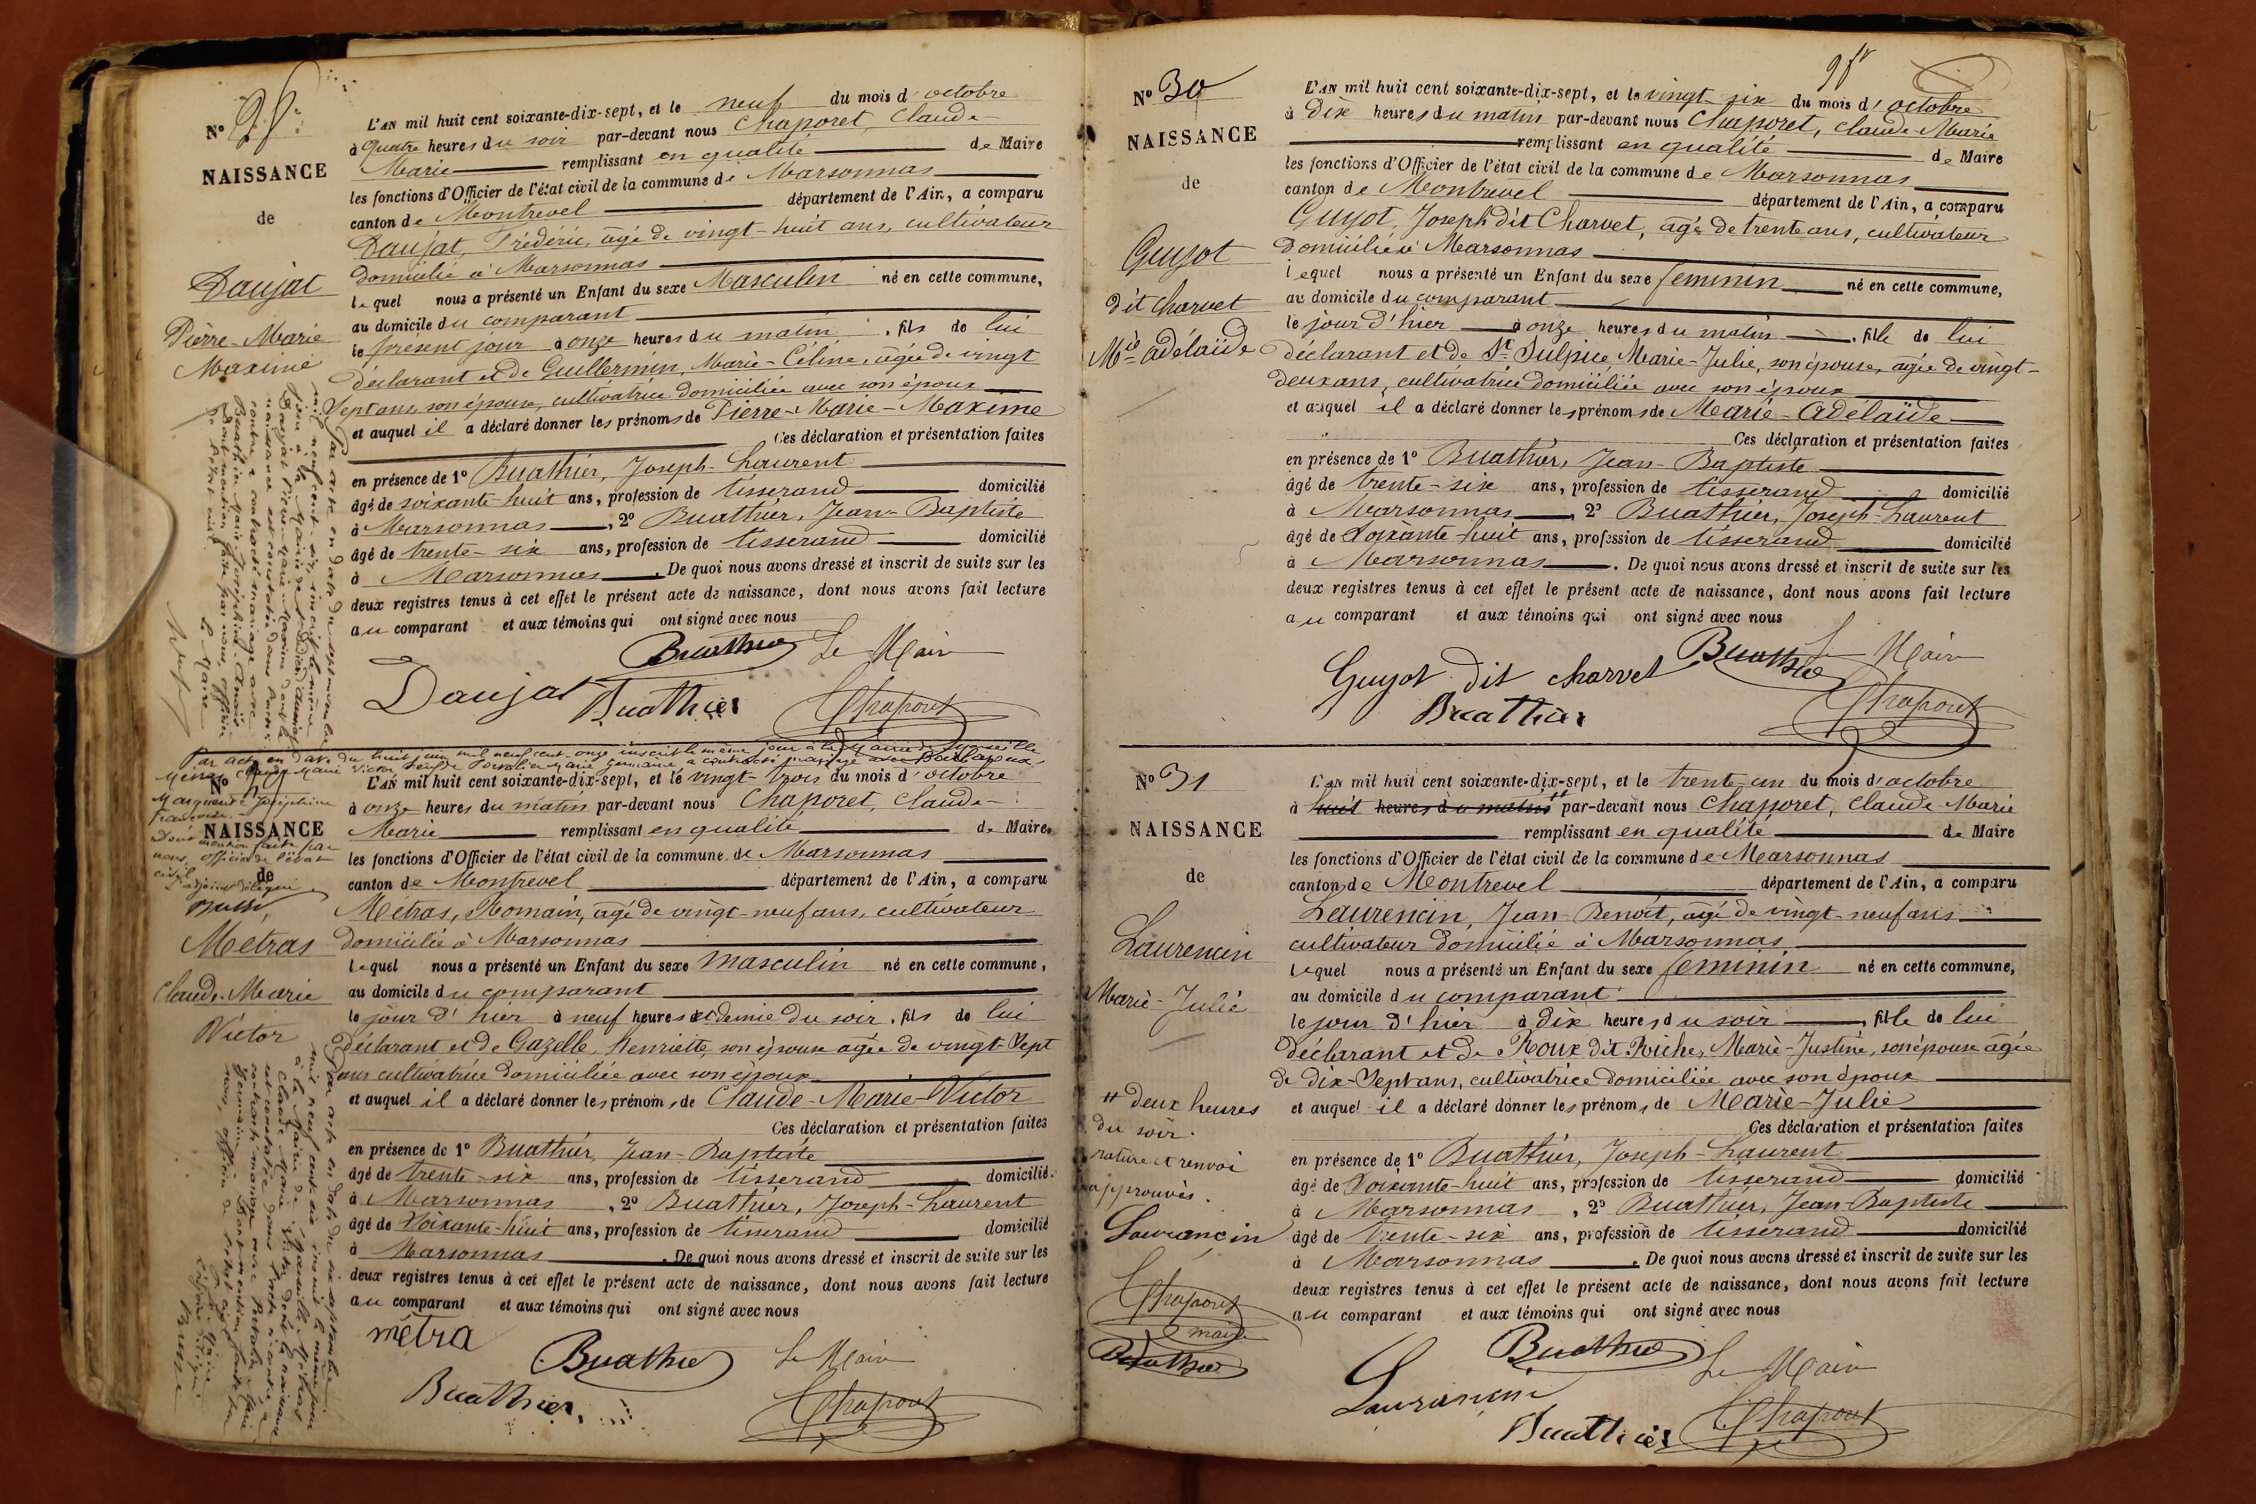 N° 28
NAISSANCE
de
Daujat
Pierre-Marie
Maxime
L'AN mil huit cent soixante-dix-sept, et le neuf du mois d'octobre
à quatre heures du soir par-devant nous Chaporet, Claude-
Marie remplissant en qualité de Maire
les fonctions d'Officier de l'état civil de la commune de Marsonnas
canton de Montrevel département de l'Ain, a comparu
Daujat, Frédéric, âgé de vingt-huit ans, cultivateur
domicilié à Marsonnas
lequel nous a présenté un Enfant du sexe Masculin né en cette commune,
au domicile du comparant
le présent jour à onze heures du matin, fils de lui
déclarant et de Guillermin, Marie-Céline, âgée de vingt
Sept ans, son épouse, cultivatrice domiciliée avec son époux
et auquel il a déclaré donner les prénoms de Pierre-Marie-Maxime
Ces déclaration et présentation faites
en présence de 1° Buathier, Joseph-Laurent
âgé de soixante-huit ans, profession de tisserand domicilié
à Marsonnas, 2° Buathier, Jean-Baptiste
âgé de trente-six ans, profession de tisserand domicilié
à Marsonnas. De quoi nous avons dressé et inscrit de suite sur les
deux registres tenus à cet effet le présent acte de naissance, dont nous avons fait lecture
au comparant et aux témoins qui ont signé avec nous
Buathier Le Maire
Daujat Buathier Chaporet
Par acte en date du huit juin mil neuf cent onze inscrit le même jour à la Mairie de
Marie Victor a contracté mariage avec
Marguerite Joséphine
Françoise
Dont mention faite par
nous, officier de l'état
civil
L'adjoint délégué
N° 29
NAISSANCE
de
Metras
Claude-Marie
Victor
L'AN mil huit cent soixante-dix-sept, et le vingt-trois du mois d'octobre
à onze heures du matin par-devant nous Chaporet, Claude-
Marie remplissant en qualité de Maire
les fonctions d'Officier de l'état civil de la commune de Marsonnas
canton de Montrevel département de l'Ain, a comparu
Metras, Romain, âgé de vingt-neuf ans, cultivateur
domicilié à Marsonnas
lequel nous a présenté un Enfant du sexe masculin né en cette commune,
au domicile du comparant
le jour d'hier à neuf heures et demie du soir, fils de lui
déclarant et de Gazelle, Henriette, son épouse âgée de vingt-Sept
ans cultivatrice domiciliée avec son époux
et auquel il a déclaré donner les prénoms de Claude-Marie-Victor
Ces déclaration et présentation faites
en présence de 1° Buathier, Jean-Baptiste
âgé de trente-six ans, profession de tisserand domicilié
à Marsonnas, 2° Buathier, Joseph-Laurent
âgé de Soixante-huit ans, profession de tisserand domicilié
à Marsonnas. De quoi nous avons dressé et inscrit de suite sur les
deux registres tenus à cet effet le présent acte de naissance, dont nous avons fait lecture
au comparant et aux témoins qui ont signé avec nous
métra
Buathier Le Maire
Buathier Chaporet
N° 30
NAISSANCE
de
Guyot
dit Charvet
Mie Adélaïde
L'AN mil huit cent soixante-dix-sept, et le vingt-six du mois d'octobre
à dix heures du matin par-devant nous Chaporet, Claude Marie
remplissant en qualité de Maire
les fonctions d'Officier de l'état civil de la commune de Marsonnas
canton de Montrevel département de l'Ain, a comparu
Guyot, Joseph dit Charvet, âgé de trente ans, cultivateur
domicilié à Marsonnas
lequel nous a présenté un Enfant du sexe feminin né en cette commune,
au domicile du comparant
le jour d'hier à onze heures du matin, fille de lui
déclarant et de St Sulpice, Marie-Julie, son épouse, agée de vingt-
deux ans, cultivatrice domiciliée avec son époux
et auquel il a déclaré donner les prénoms de Marie-Adélaïde
Ces déclaration et présentation faites
en présence de 1° Buathier, Jean-Baptiste
âgé de trente-six ans, profession de tisserand domicilié
à Marsonnas, 2° Buathier, Joseph-Laurent
âgé de Soixante-huit ans, profession de tisserand domicilié
à Marsonnas. De quoi nous avons dressé et inscrit de suite sur les
deux registres tenus à cet effet le présent acte de naissance, dont nous avons fait lecture
au comparant et aux témoins qui ont signé avec nous
Guyot dit charvet Buathier Le Maire
Buathier Chaporet
N° 31
NAISSANCE
de
Laurencin
Marie-Julie
deux heures
du soir.
rature et renvoi
approuvés.
Laurancin
Chaporet
maire
Buathier
L'AN mil huit cent soixante-dix-sept, et le trente-un du mois d'octobre
à huit heures du matin par-devant nous Chaporet, Claude Marie
remplissant en qualité de Maire
les fonctions d'Officier de l'état civil de la commune de Marsonnas
canton de Montrevel département de l'Ain, a comparu
Laurencin, Jean-Benoit, âgé de vingt-neuf ans
cultivateur domicilié à Marsonnas
lequel nous a présenté un Enfant du sexe feminin né en cette commune,
au domicile du comparant
le jour d'hier à dix heures du soir, fille de lui
déclarant et de Roux dit Riche, Marie-Justine, son épouse agée
de dix-Sept ans, cultivatrice domiciliée avec son époux
et auquel il a déclaré donner les prénoms de Marie-Julie
Ces déclaration et présentation faites
en présence de 1° Buathier, Joseph-Laurent
âgé de Soixante-huit ans, profession de tisserand domicilié
à Marsonnas, 2° Buathier, Jean-Baptiste
âgé de trente-six ans, profession de tisserand domicilié
à Marsonnas. De quoi nous avons dressé et inscrit de suite sur les
deux registres tenus à cet effet le présent acte de naissance, dont nous avons fait lecture
au comparant et aux témoins qui ont signé avec nous
Buathier Le Maire
Laurancin
Buathier Chaporet